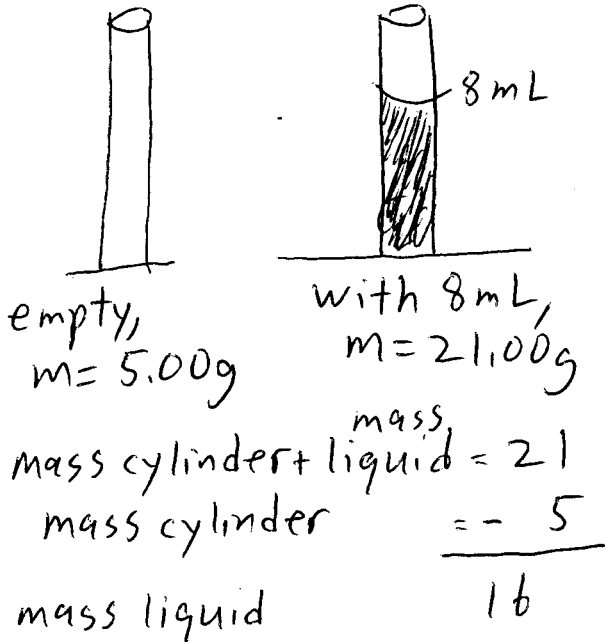 8 mL
empty,
m= 5.00g
with 8mL,
m= 21.00g
mass
mass cylinder + liquid = 21
mass cylinder = - 5
mass liquid 16